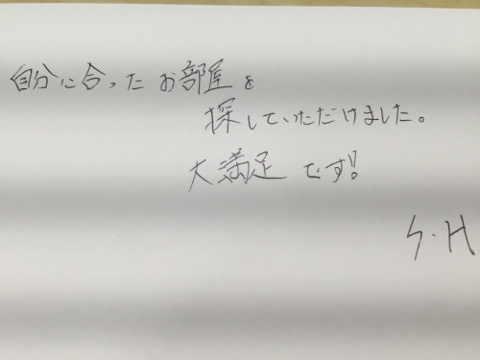 自分に合ったお部屋を
探していただけました。
大満足です!
S・H